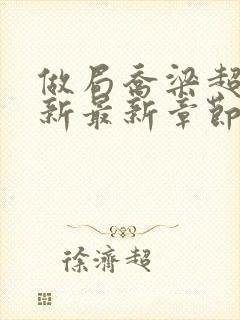 做局乔梁超
新最新章节
徐济超